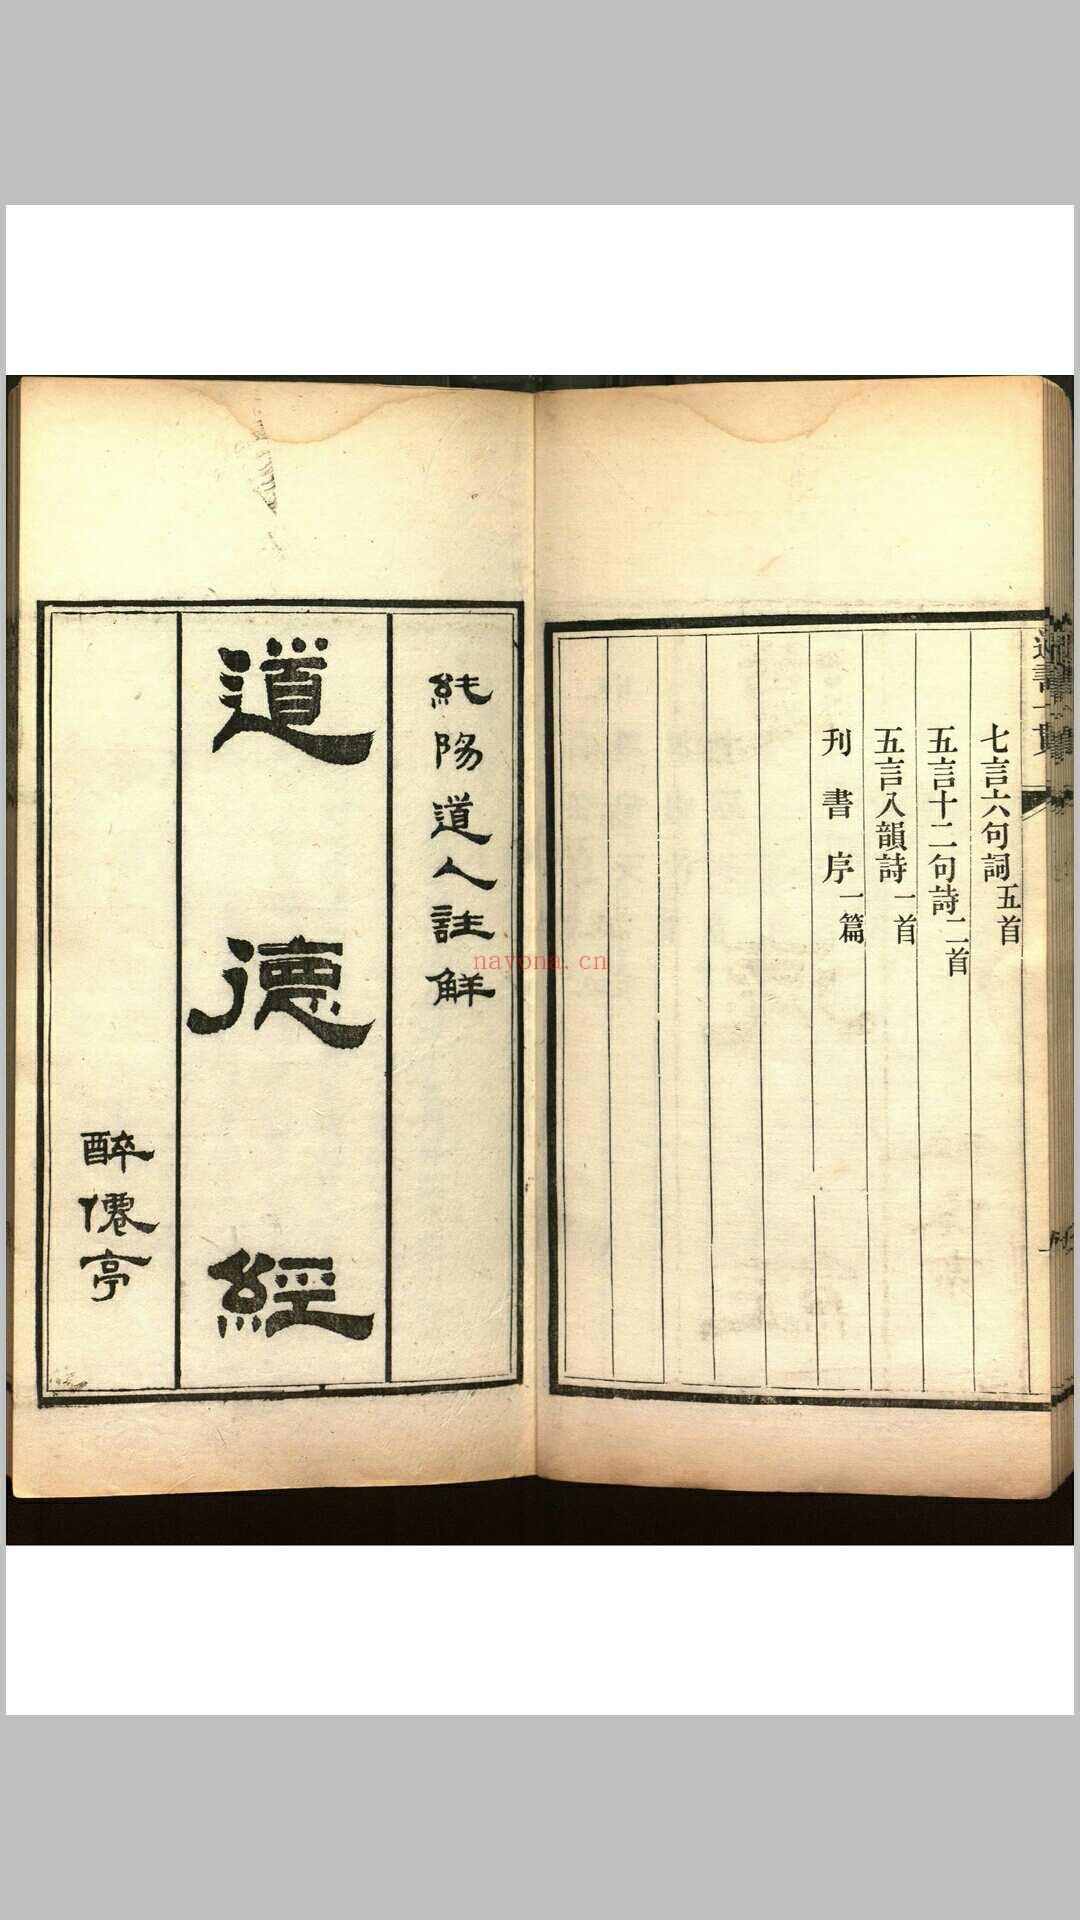 七言六句詞五首
五言十二句詩二首
五言八韻詩一首
刊書序一篇
純陽道人註解
道德經
醉僊亭
nayona.cn